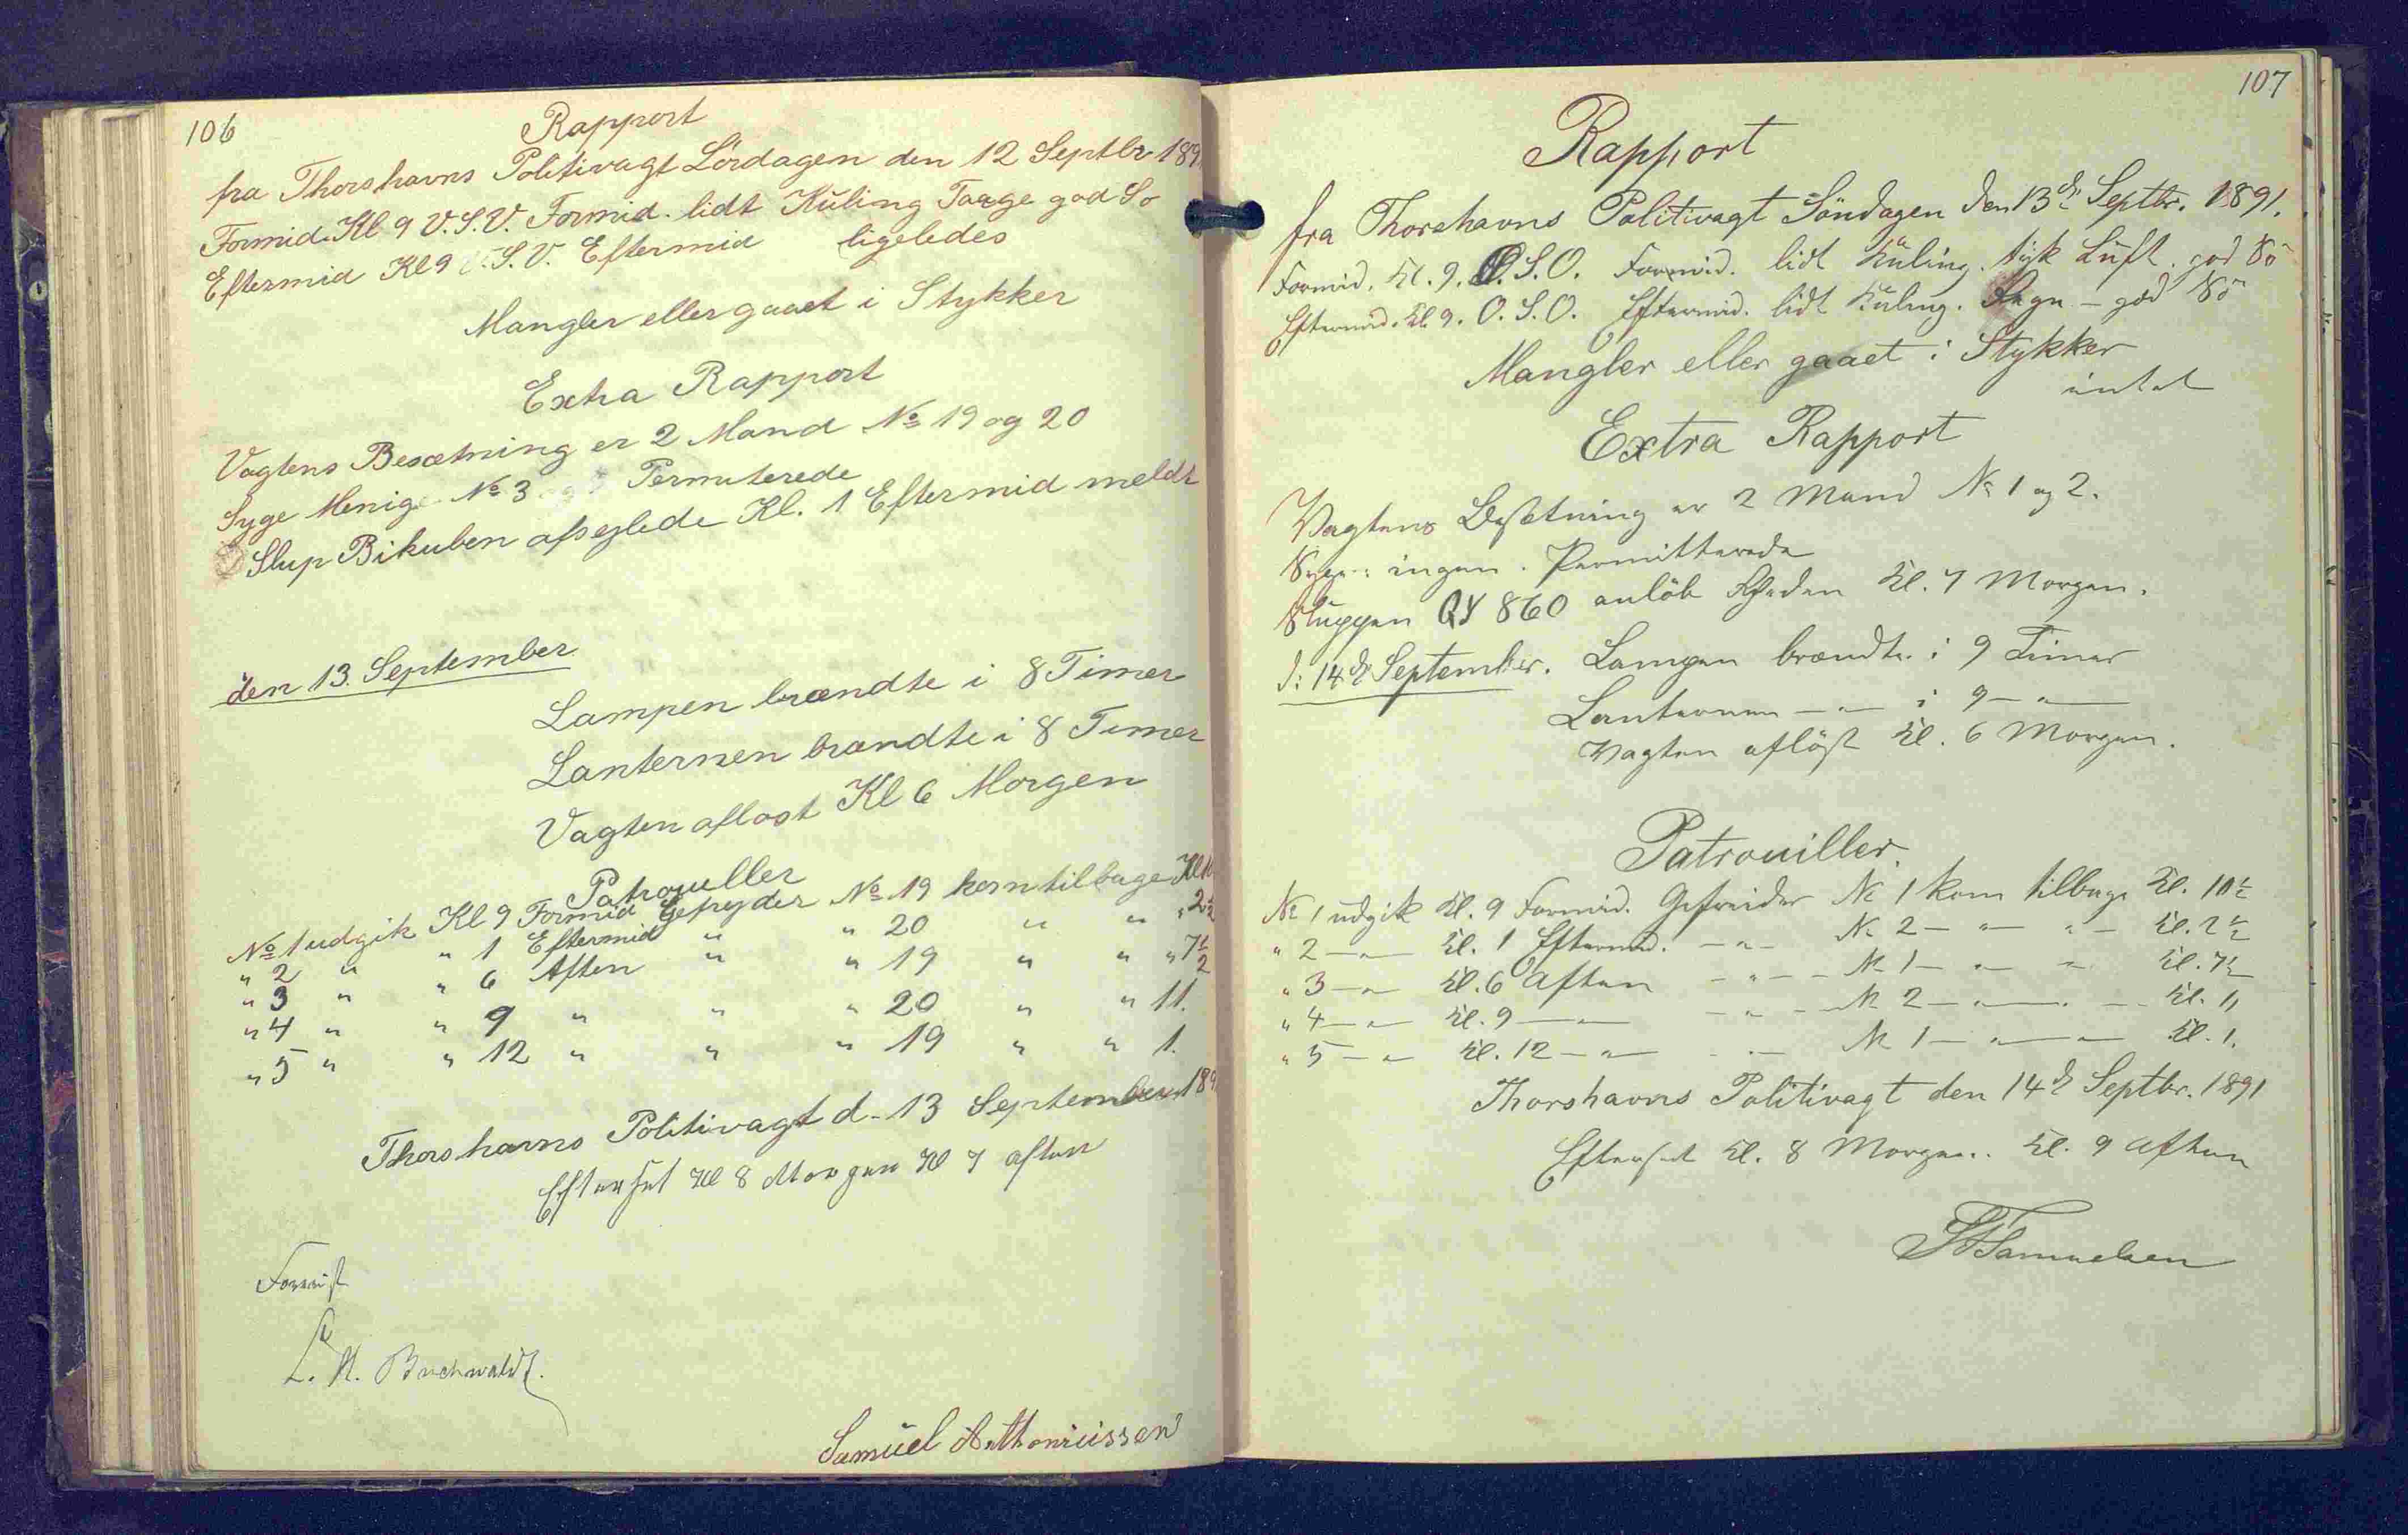 106
Rapport
fra Thorshavns Politivagt Lördagen den 12 Septbr 189
Formid. Kl 9 V.S.V. Formid. lidt Kuling Taage god So
Eftermid Kl 9 V.S.V. Eftermid ligeledes
Mangler eller gaaet i Stykker
Extra Rapport
Vagtens Besætning er 2 Mand No 19 og 20
Syge Menig No 3 Permiterede
Slup Bikuben afseglede Kl. 1 Eftermid meldt
den 13. September
Lampen brændte i 8 Timer
Lanternen brændte i 8 Timer
Vagten aflost Kl 6 Morgen
Patrouller
No 1 udgik Kl 9 Formid Gefreyder No 19 kom tilbage Kl 10
" 2 " " 1 Eftermid " " 20 " " " 2½
" 3 " " 6 Aften " " 19 " " " 7½
" 4 " " 9 " " " 20 " " 11.
" 5 " " 12 " " " 19 " " 1.
Thorshavns Politivagt d. 13 September 189
Efterset Kl 8 Morgen Kl 7 aften
Forevist
L. H. Buchwaldt.
Samuel Anthoniussen
107
Rapport
fra Thorshavns Politivagt Söndagen den 13de Septbr. 1891.
Formid. Kl. 9. O.S.O. Formid. lidt Kuling. tyk Luft. god Sö
Eftermid. Kl. 9. O.S.O. Eftermid. lidt Kuling. Regn – god Sö
Mangler eller gaaet i Stykker
intet
Extra Rapport
Vagtens Besætning er 2 Mand No 1 og 2.
Syge: ingen. Permitterede
Sluppen 860 anlöb Rheden Kl. 7 Morgen.
d: 14de September. Lampen brændte i 9 Timer
Lanternen — " — i 9 — " —
Vagten aflöst Kl. 6 Morgen.
Patrouiller.
No 1 udgik Kl. 9 Formid. Gefreider No 1 kom tilbage Kl. 10½
" 2 — " — Kl. 1 Eftermid. — " — No 2 — " — " — Kl. 2½
" 3 — " — Kl. 6 Aften — " — No 1 — " — " Kl. 7½
" 4 — " — Kl. 9 — " — — " — No 2 — " — " — Kl. 11
" 5 — " — Kl. 12 — " — — " — No 1 — " — " — Kl. 1.
Thorshavns Politivagt den 14de Septbr. 1891
Efterset Kl. 8 Morgen. Kl. 9 Aften
Samuelsen